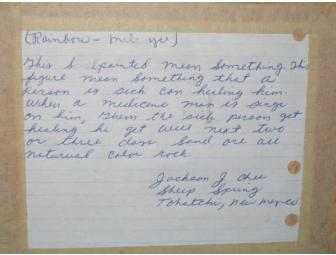 (Rainbow -
This S I painted mean something. This
figure mean something that a
person is sick can healing him.
When a medicine man is sings
on him, Them the sick person get
healing he get well next two
or three days. Sand are all
naturual color rock.
Jackson J. Chee
Sheep Spring
Tohatchi, New Mexico